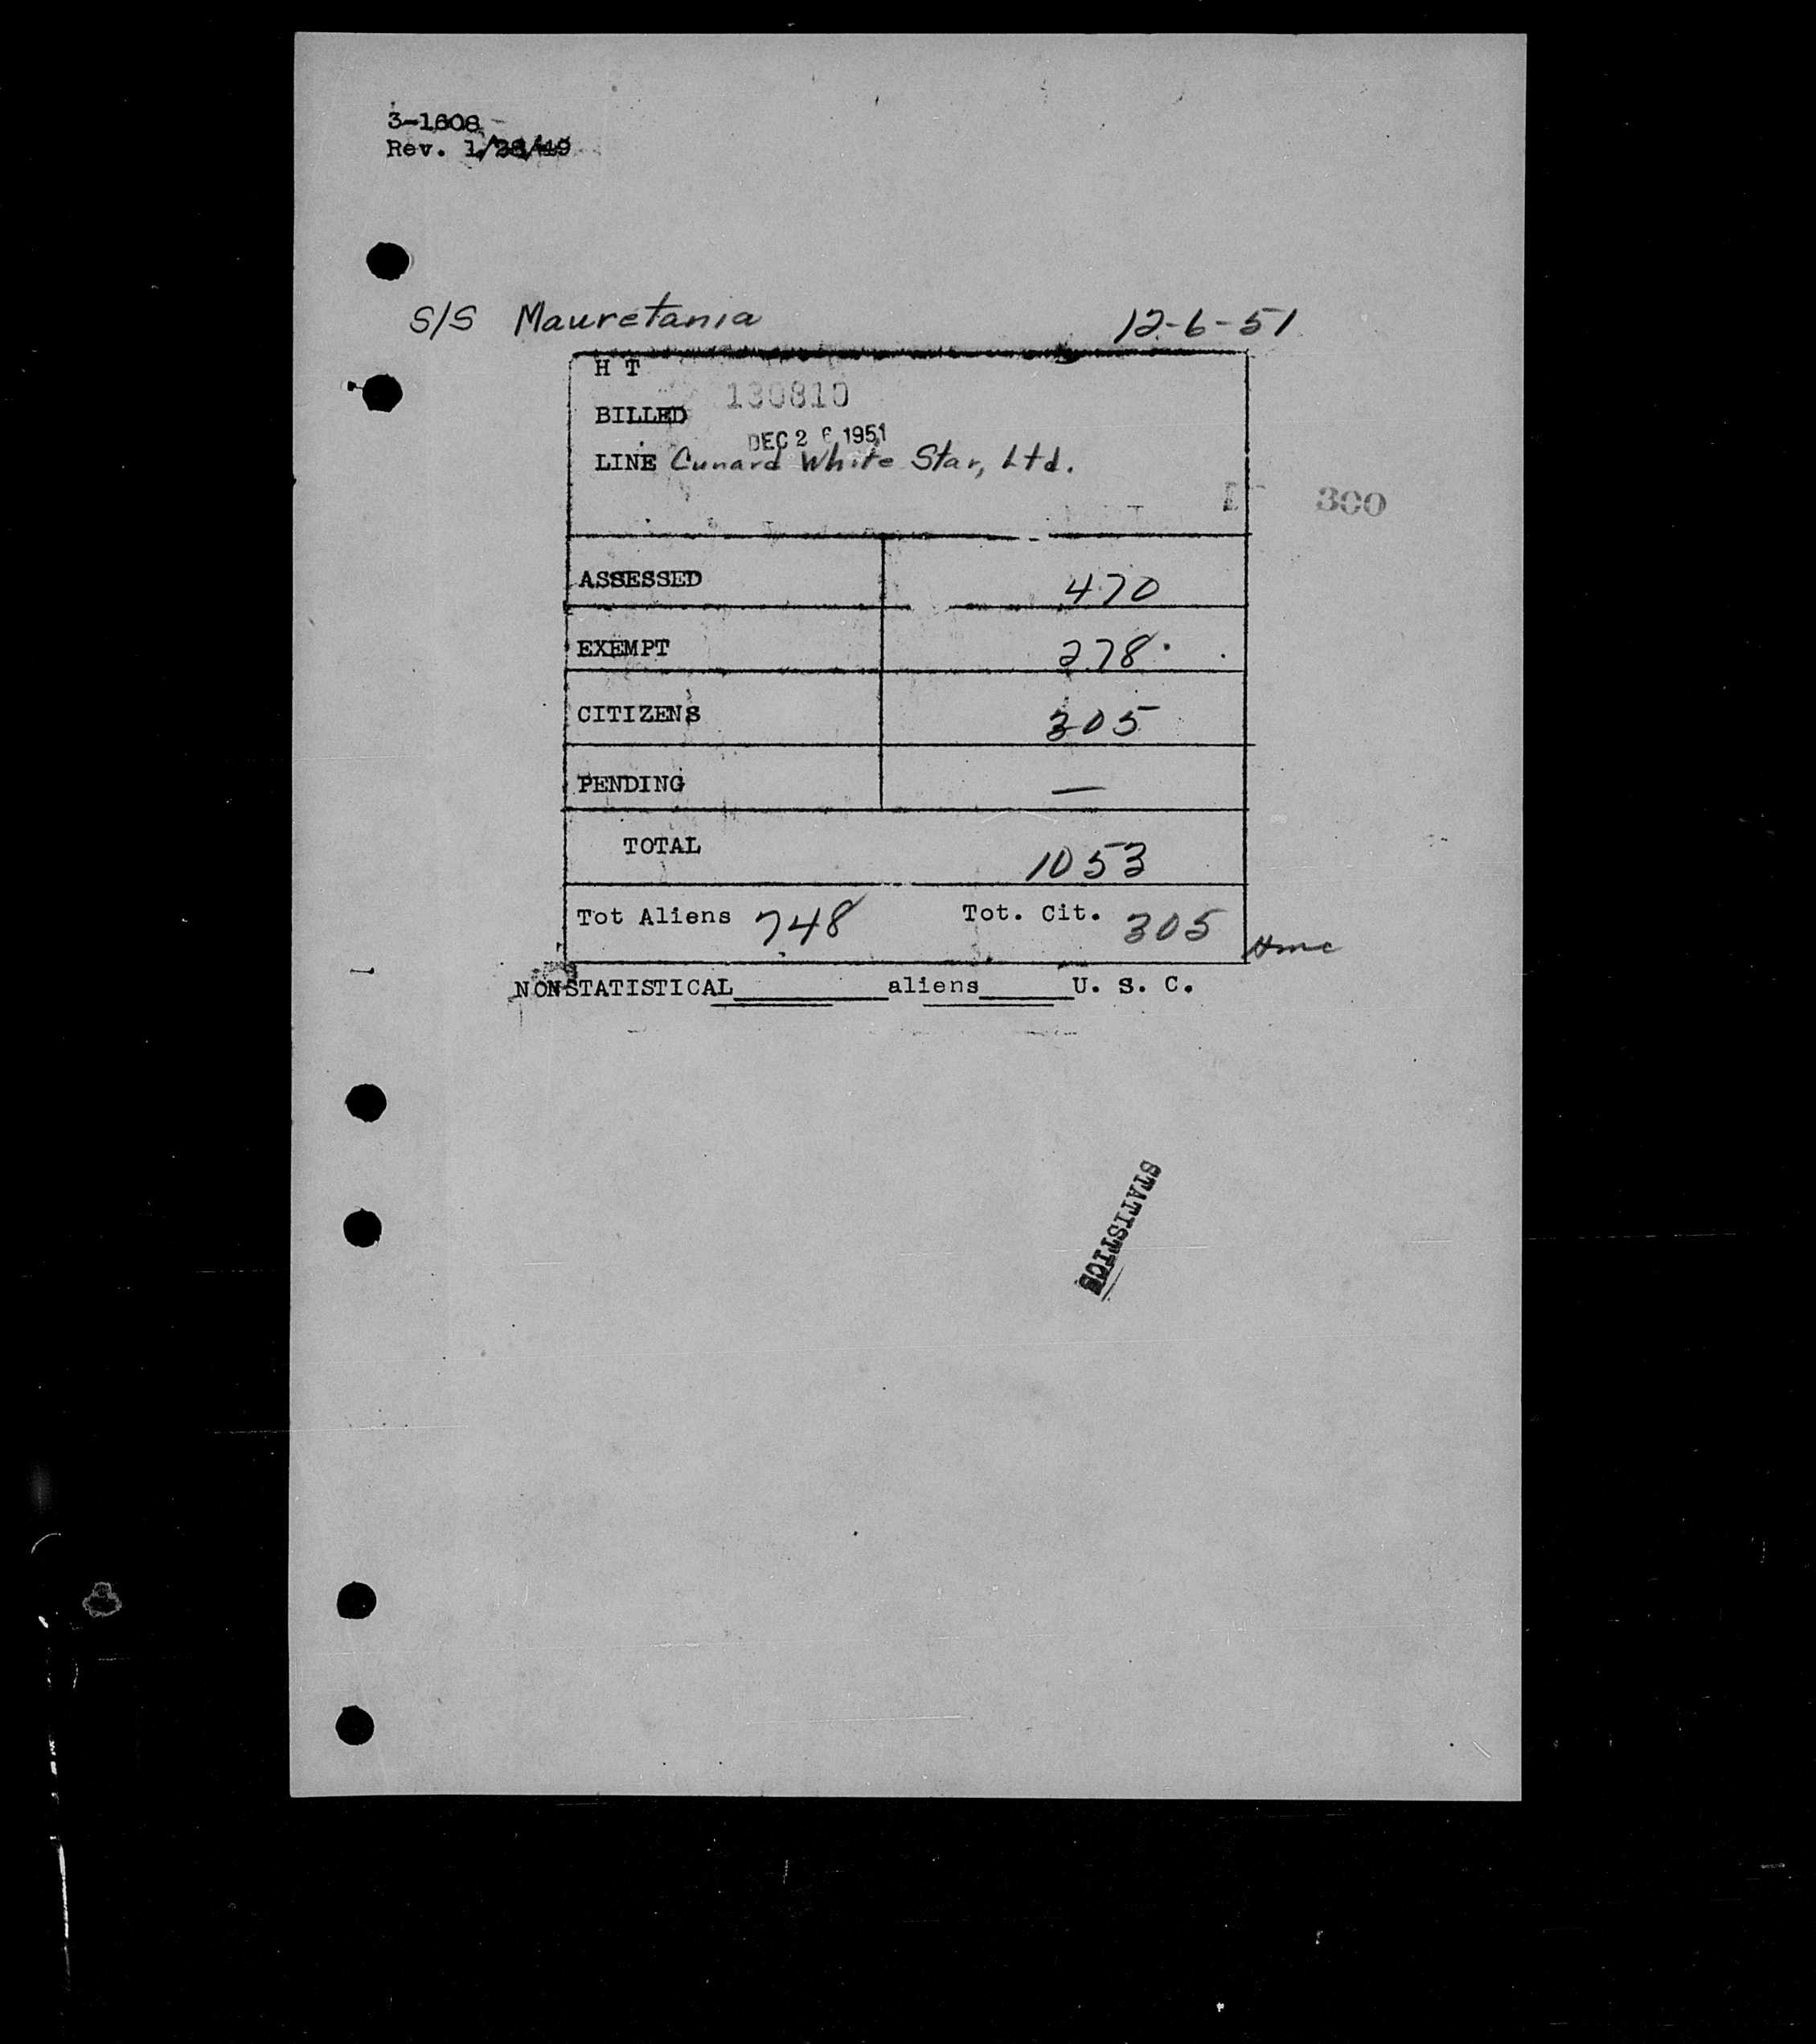 3-1608
Rev. 1/28/49
S/S Mauretania 12-6-51
H T
130810
BILLED
DEC 26 1951
LINE Cunard White Star, Ltd.
300
ASSESSED 470
EXEMPT 278
CITIZENS 305
PENDING —
TOTAL 1053
Tot Aliens 748 Tot. Cit. 305
NONSTATISTICAL________aliens_____U. S. C.
STATISTICS